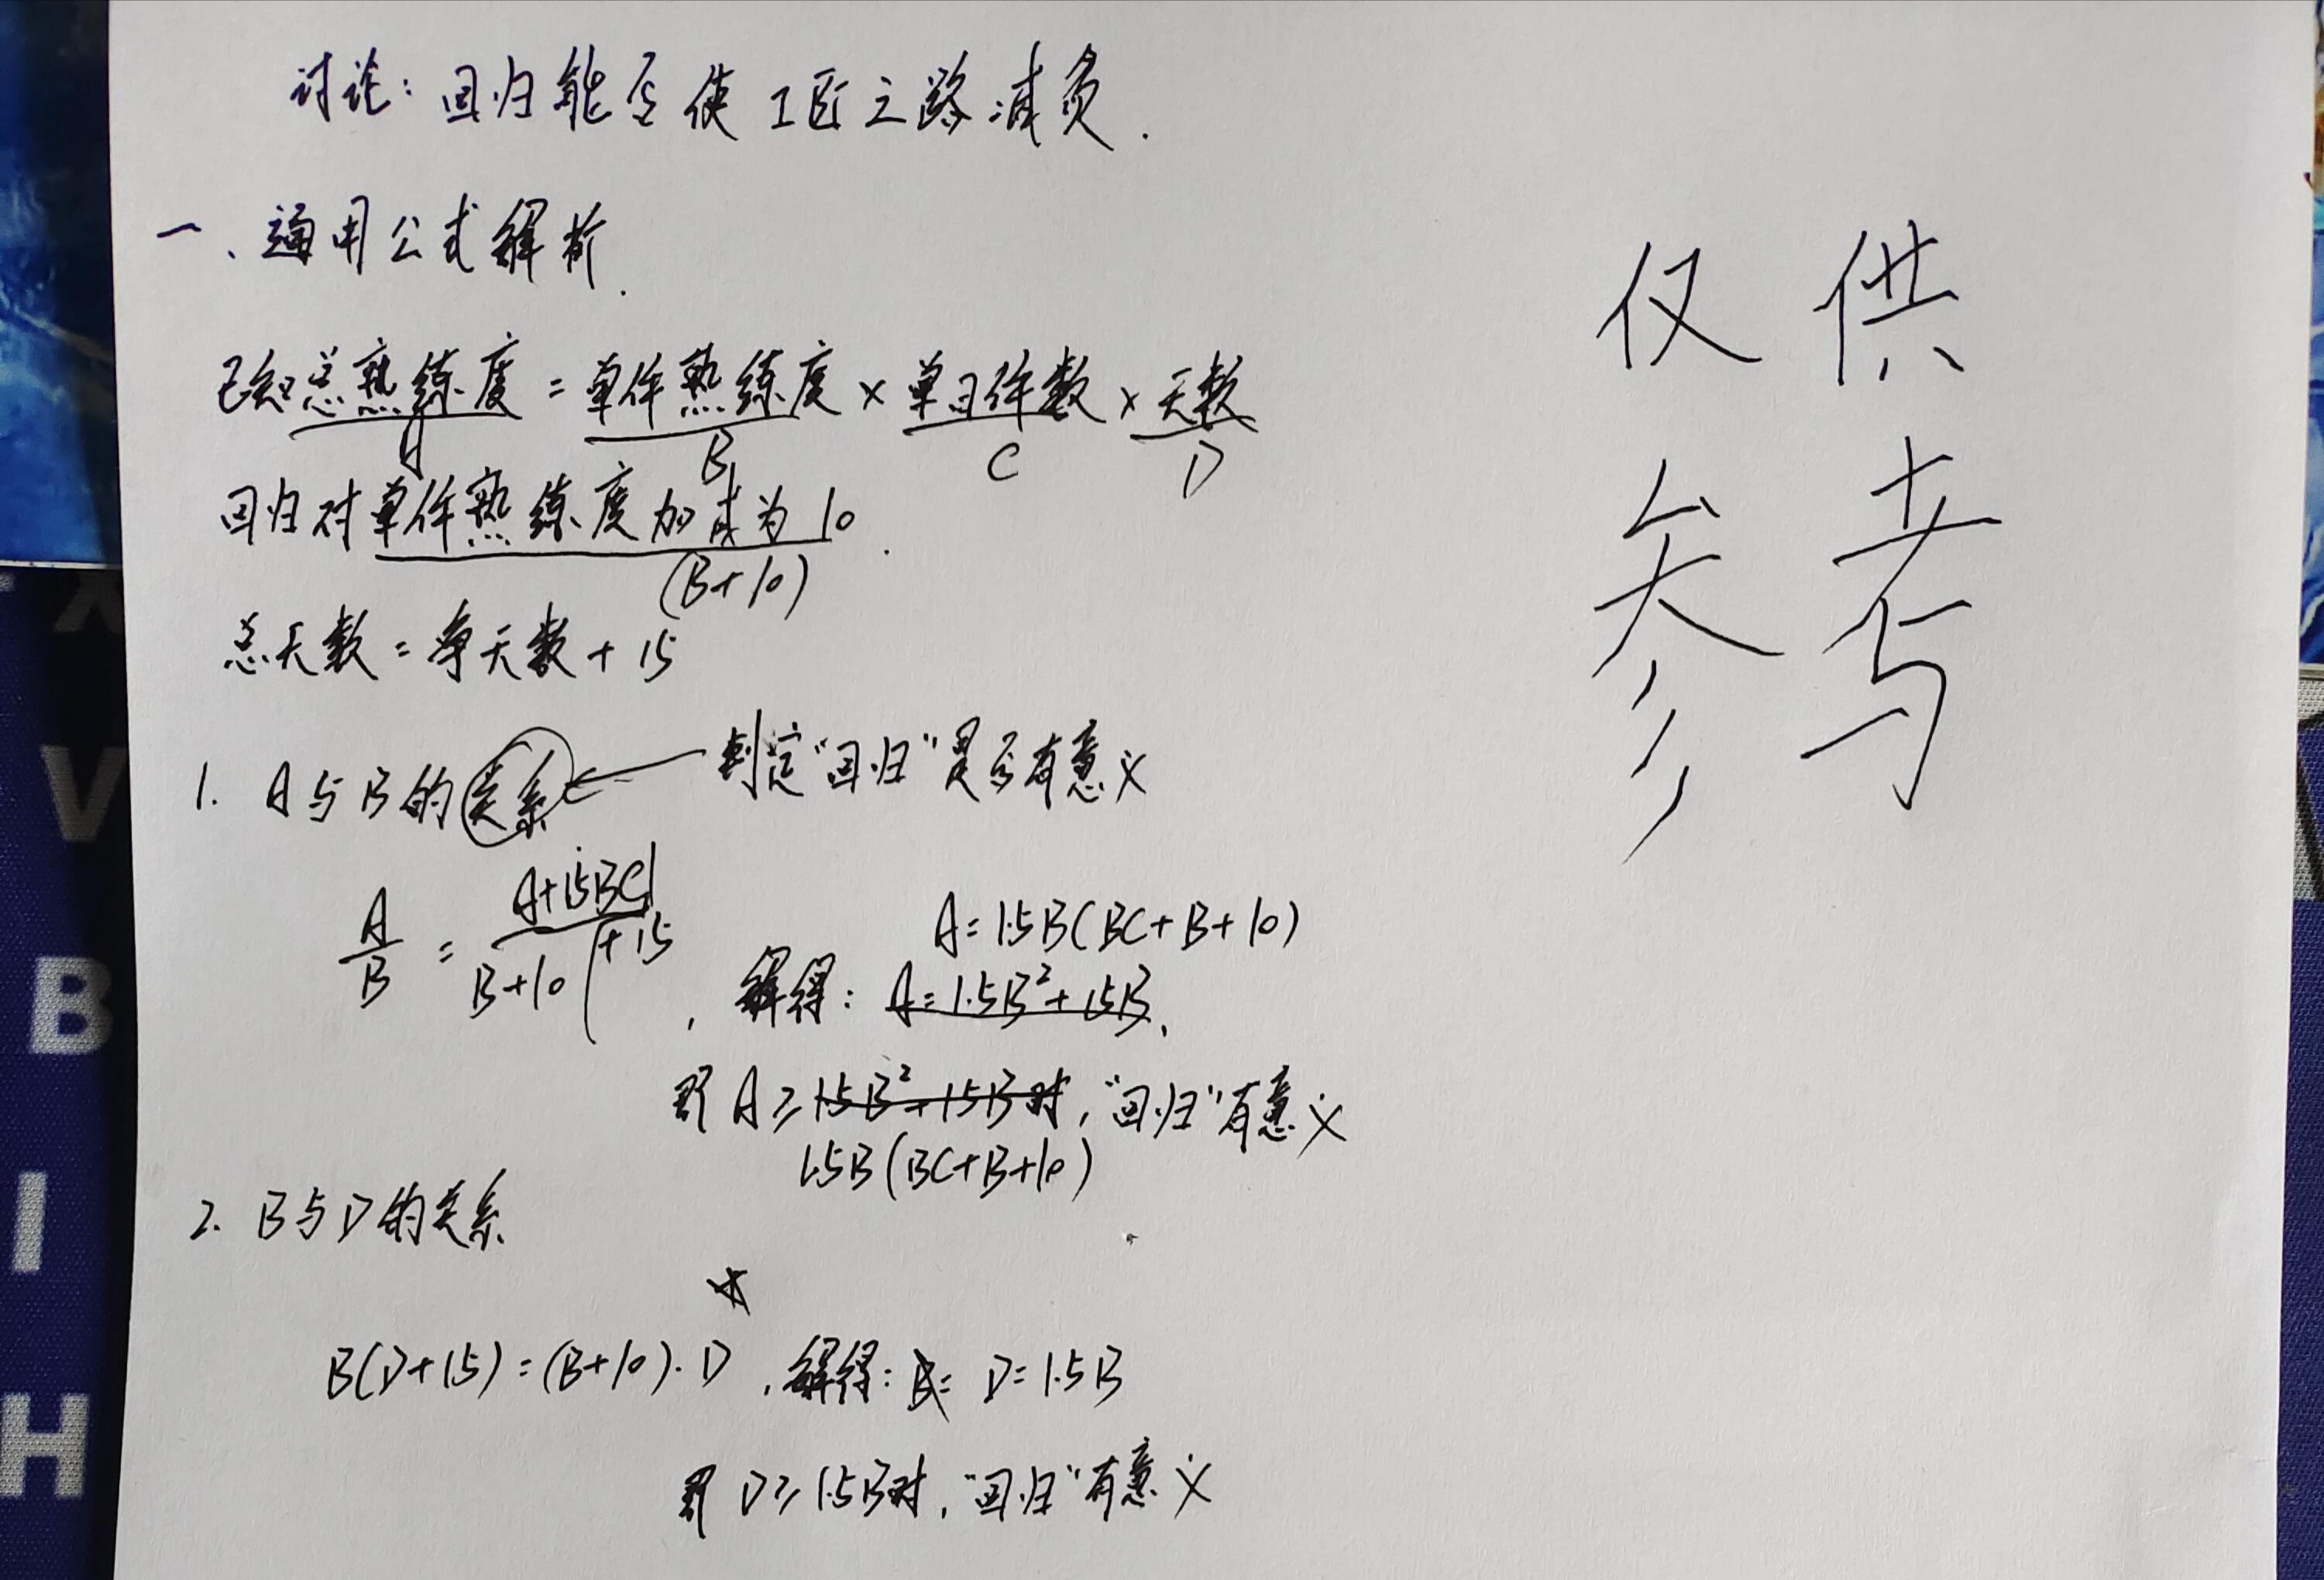 讨论：回归能否使工匠之路减负.
一、通用公式解析.
已知总熟练度 = 单件熟练度 × 单日件数 × 天数
A B C D
回归对单件熟练度加成为10.
(B+10)
总天数 = 净天数 + 15
1. A与B的关系 ← 判定"回归"是否有意义
A/B = (A+15BC)/(B+10) + 15
A=1.5B(BC+B+10)
, 解得: A=1.5B²+15B.
即 A≥1.5B²+15B时, "回归"有意义
1.5B(BC+B+10)
2. B与D的关系
B(D+15)=(B+10)·D, 解得: B= D=1.5B
即 D≥1.5B时, "回归"有意义
仅供
参考
X
V
B
I
H